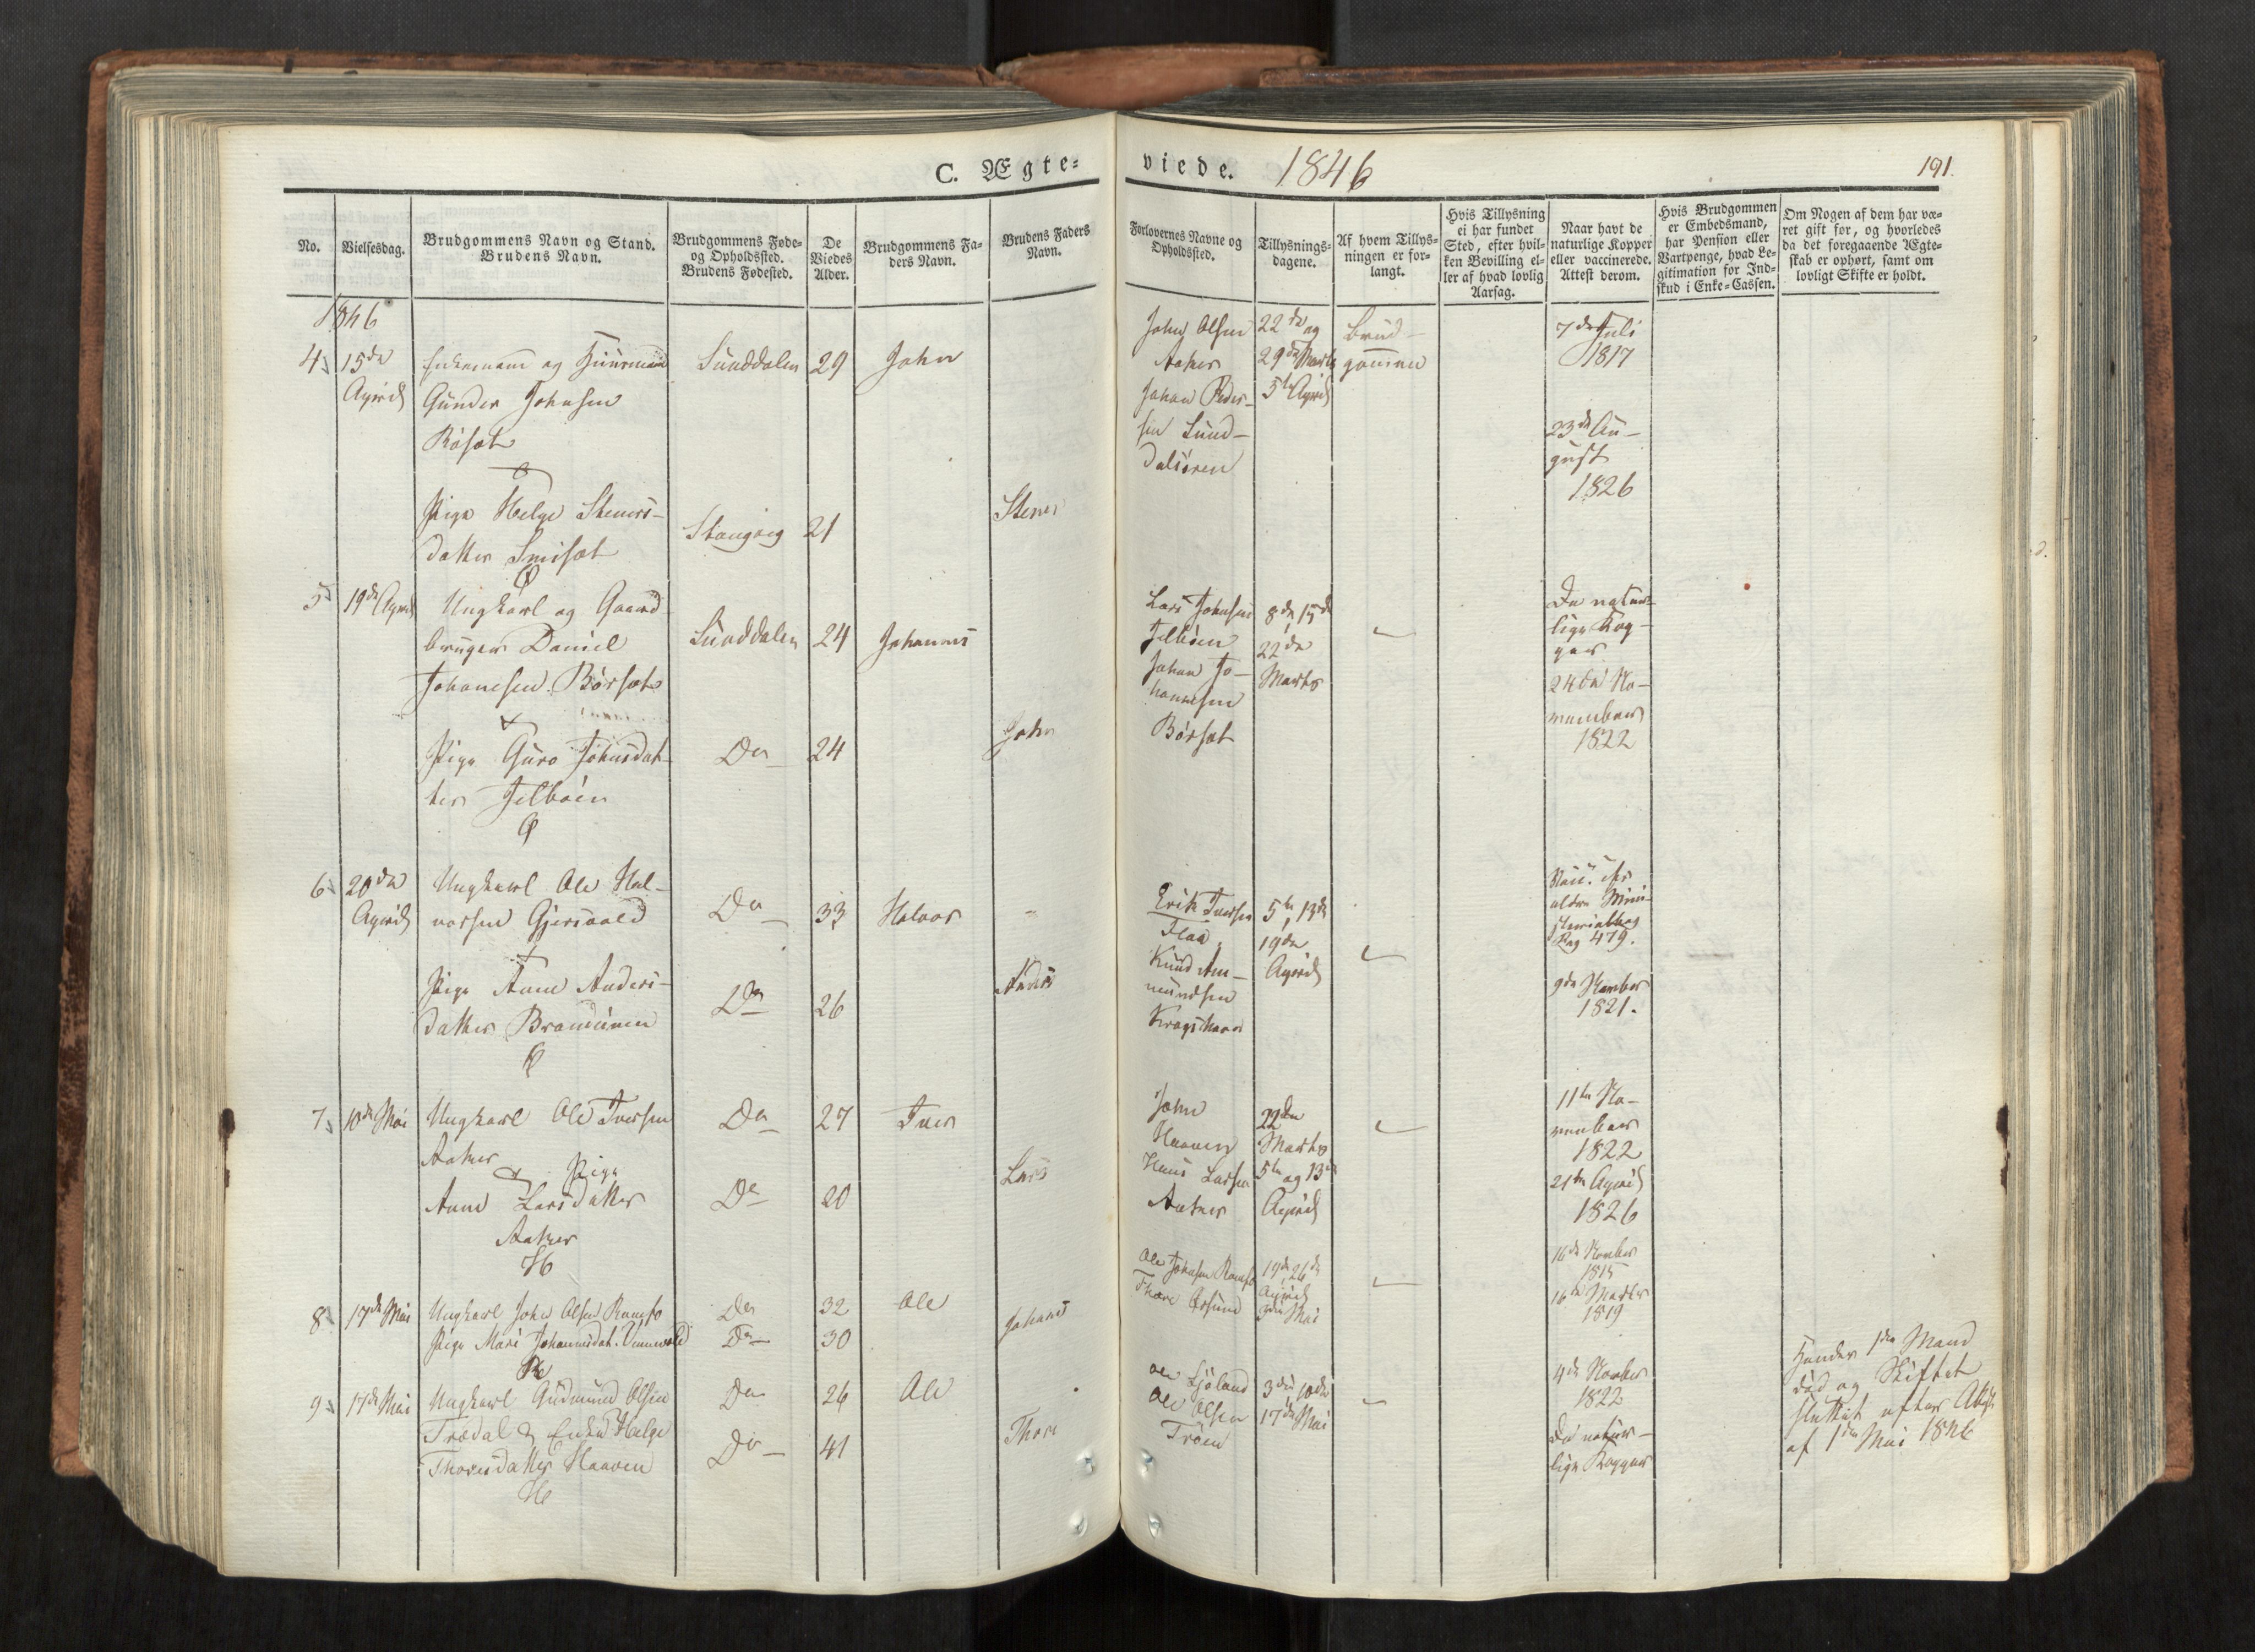 C. Ægte=
viede. 1846
191.
No.
Vielsesdag.
Brudgommens Navn og Stand.
Brudens Navn.
Brudgommens Føde=
og Opholdssted.
Brudens Fødested.
De
Viedes
Alder.
Brudgommens Fa=
ders Navn.
Brudens Faders
Navn.
Forlovernes Navne og
Opholdssted.
Tillysnings=
dagene.
Af hvem Tillys=
ningen er for=
langt.
Hvis Tillysning
ei har fundet
Sted, efter hvil=
ken Bevilling el=
ler af hvad lovlig
Aarsag.
Naar havt de
naturlige Kopper
eller vaccinerede.
Attest derom.
Hvis Brudgommen
er Embedsmand,
har Pension eller
Vartpenge, hvad Le=
gitimation for Ind=
skud i Enke=Cassen.
Om Nogen af dem har væ=
ret gift før, og hvorledes
da det foregaaende Ægte=
skab er ophørt, samt om
lovligt Skifte er holdt.
1846
4 15de Enkemand og Huusmand Sunddalen 29 John
April Gunder Johnsen
Røsæt
&
Pige Helge Steners-
datter Smisæt
Stangvig 21 Stener
John Olsen
Aaker
Johan Peder-
sen Sund-
dalsøren
22de og
29de Marts
5te April
Brud-
gommen
7de Juli
1817
23de Au-
gust
1826
5 19de April Ungkarl og Gaard
bruger Daniel
Johansen Børsæt
Sunddalen 24 Johannes
&
Pige Guro Johnsdat-
ter Jelbøen
Do 24 John
Lars Johnsen
Jelbøen
Johan Jo-
hannesen
Børsæt
8de, 15de
22de
Marts
De natur-
lige Kop-
per
24de No-
vember
1822
6 20de Ungkarl Ole Hal-
April vorsen Gjersvold
Do 33 Halvor
&
Pige Anne Anders-
datter
Do 26 Anders
Erik Iversen
Flaa
Knud Am-
mundsen
5te, 13de
19de
April
ældre Mini-
sterialbog
Pag 479.
9de
1821.
7 10de Mai Ungkarl Ole Iversen Do 27 Iver
Aaker & Pige
Anne Larsdatter
Aaker
H
Do 20 Lars
John
Haaven
Hans Larsen
Aaker
22de
Marts
5te og 13de
April
11te No-
vember
1822
21de April
1826
8 17de Mai Ungkarl John Olsen Do 32 Ole
Pige Mari Johannesdat. Do 30 Johanes
Ole Johnsen
Thore
19de, 26de
April
3die Mai
16de
1815
16de Marts
1819
9 17de Mai Ungkarl Gudmund Olsen Do 26 Ole
Trædal & Enke Helge
Thoresdatter Haaven
H
Do 41 Thore
Ole
Ole Olsen
Trøen
3die, 10de
17de Mai
4de
1822
De natur-
lige Kopper
Hendes 1ste Mand
død og Skiftet
sluttet efter
af 1ste Mai 1846